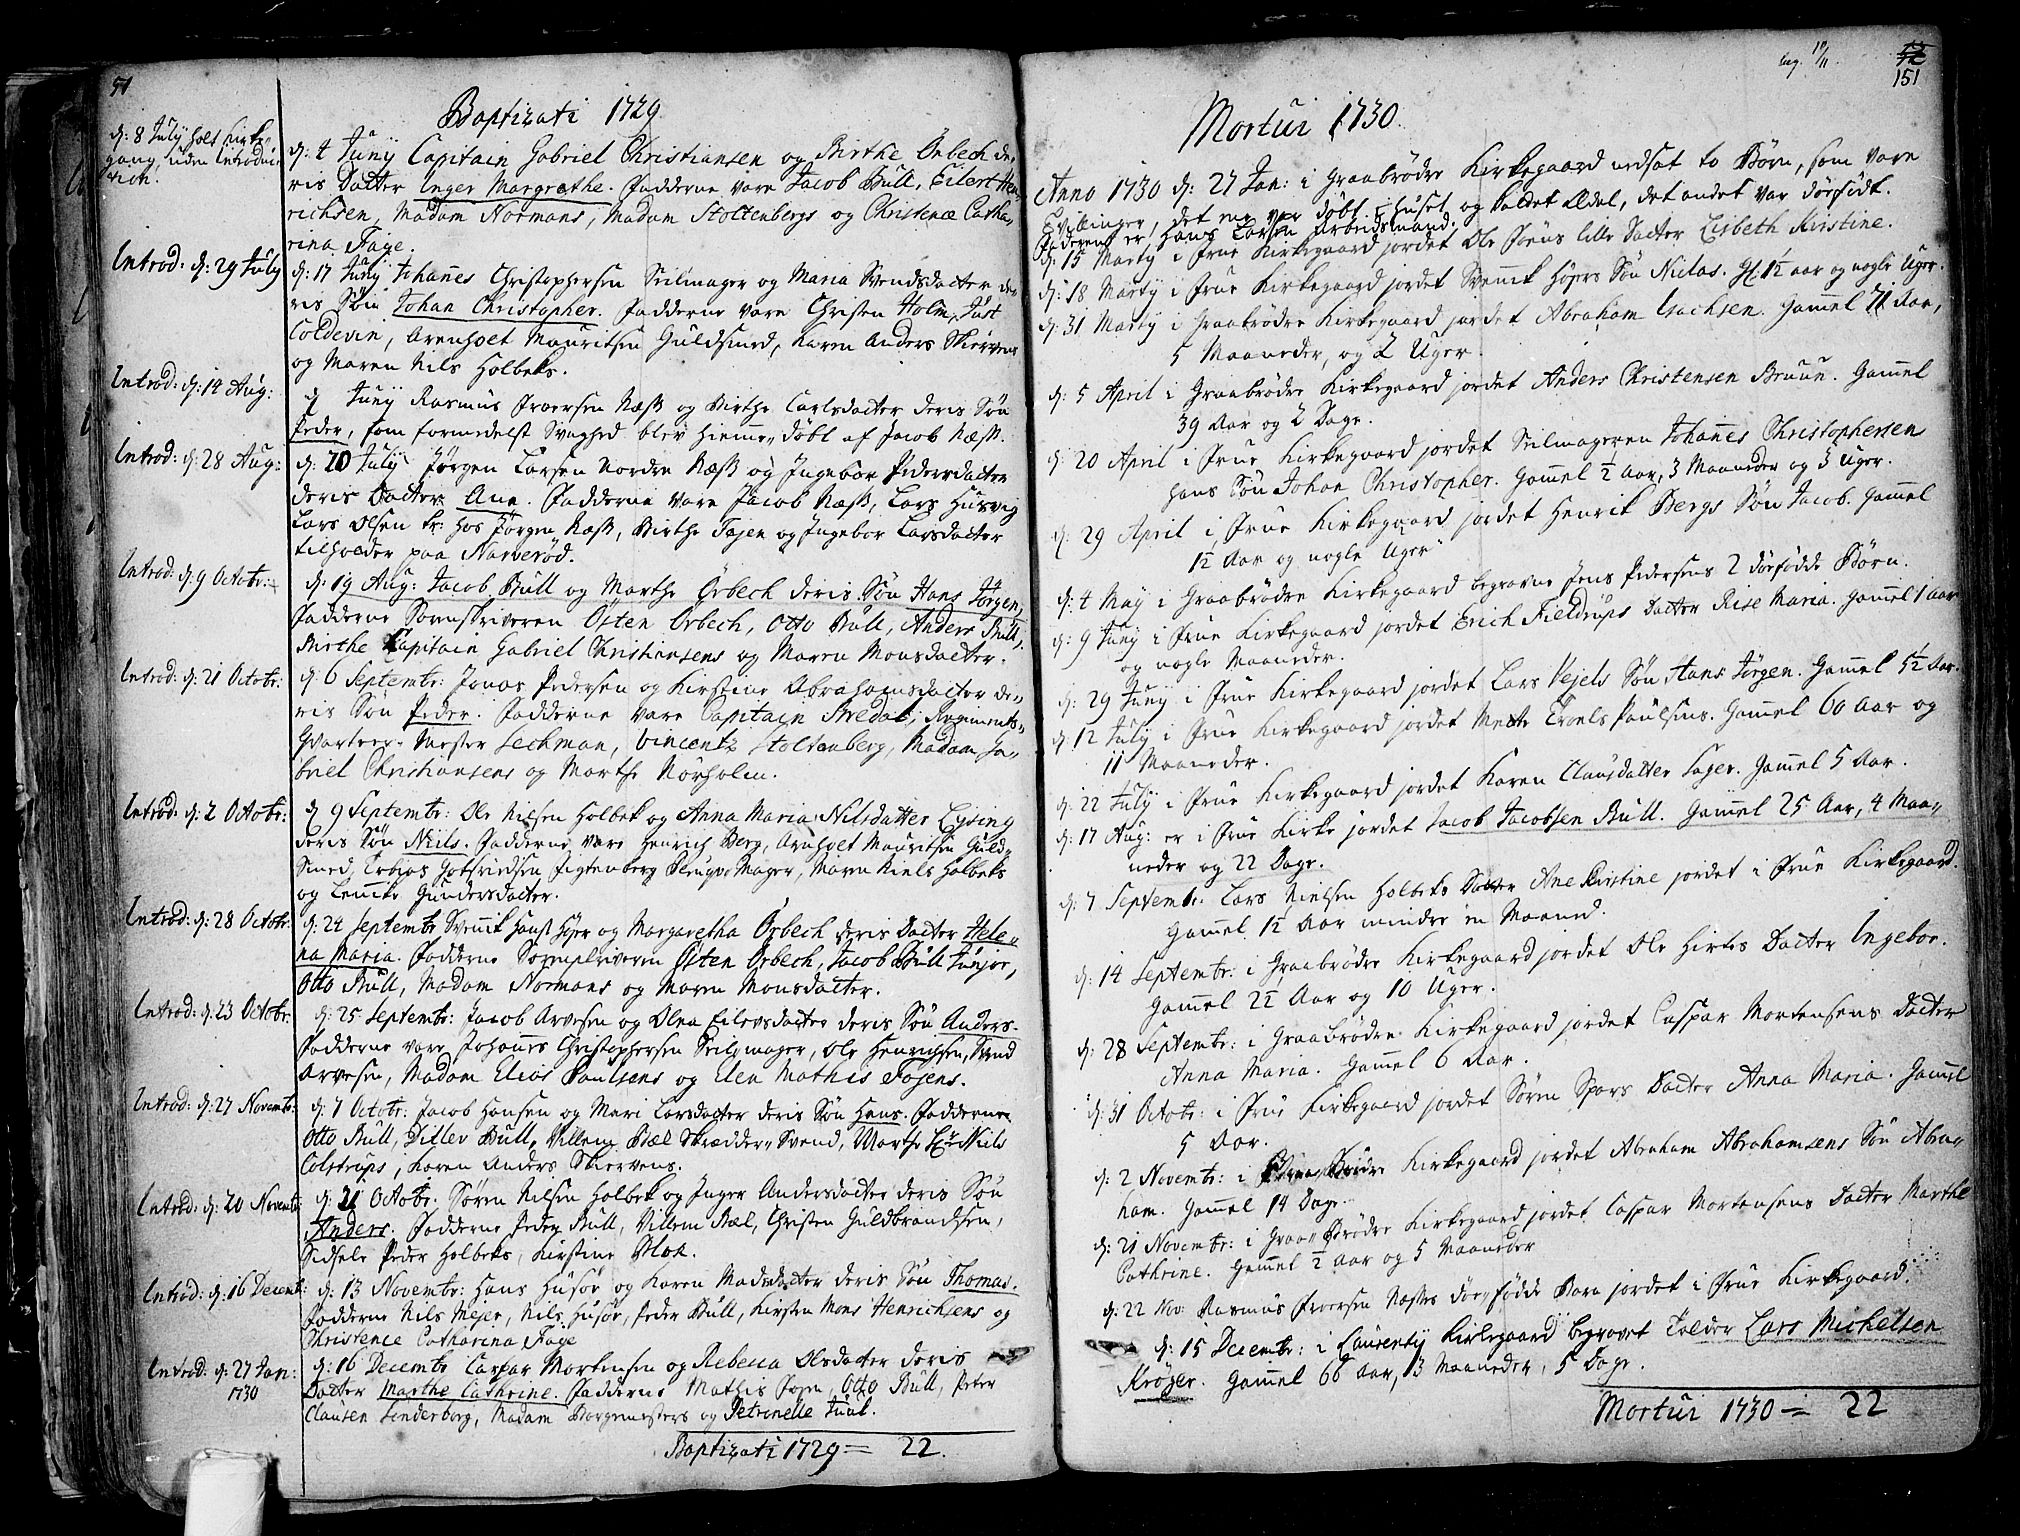 51
Baptizati 1729
d: 8 July holt Kirke-
gang uden Introduc-
d: 4 Juny Capitain Gabriel Christiansen og Birthe Ørbech de-
ris Datter Inger Margrethe. Fadderne vare Jacob Bull, Eilert Hen-
richsen, Madam Normans, Madam Stoltenbergs og Christence Catha-
rina Faye.
Introd: d: 29 July
d: 17 Juny Johannes Christophersen Seilmager og Maria Svendsdatter de-
ris Søn Johan Christopher. Fadderne vare Christen Holm, Just
Coldevin, Arenholt Mauritsen Guldsmed, Karen Anders Skiervens
og Maren Nils Holbeks.
Introd: d: 14 Aug:
Juny Rasmus Iversen Næss og Birthe Carlsdatter deris Søn
Peder, som formedelst Svaghed blev hiemme-døbt af Jacob Næss.
Introd: d: 28 Aug:
d: 20 July Jørgen Larsen Nordre Næss og Ingebor Pedersdatter
deris Datter Ane. Fadderne vare Jacob Næss, Lars Husvig
Lars Olsen hos Jørgen Næss, Birthe Fajen og Ingebor Larsdatter
tilholder paa Narverød.
Introd: d: 9 Octobr:
d: 19 Aug: Jacob Bull og Marthe Ørbech deris Søn Hans Jørgen,
Fadderne Sorenskriveren Østen Ørbech, Otto Bull, Anders Bull,
Birthe Capitain Gabriel Christiansens og Maren Monsdatter.
Introd: d: 21 Octobr:
d: 6 Septembr: Jonas Pedersen og Kirstine Abrahamsdatter de-
ris Søn Peder. Fadderne vare Capitain Bredal, Regiments-
Qvarteer-Mester Lechman, Vincentz Stoltenberg, Madam Ga-
briel Christiansens og Marthe Nörholm.
Introd: d: 2 Octobr:
d 9 Septembr: Ole Nielsen Holbek og Anna Maria Nilsdatter Lysing
deris Søn Niils. Fadderne vare Henrich Berg, Arnholt Mauritsen Guld-
Smed, Tobias Gotfriedsen Figtenberg Peruqve Mager, Maren Niels Holbeks
og Lenicke Gundersdatter.
Introd: d: 28 Octobr:
d: 24 Septembr Svennik Hansen Høyer og Margaretha Ørbech deris Datter Hele-
na Maria. Fadderne Sorenskriveren Østen Ørbech, Jacob Bull Junjor,
Otto Bull, Madam Normans og Maren Monsdatter.
Introd: d: 23 Octobr.
d: 25 Septembr: Jacob Arvesen og Olea Eilevsdatter deris Søn Anders.
Fadderne vare Johannes Christophersen Seilmager, Ole Henrichsen, Svend
Arvesen, Madam Elias Paulsens og Elen Mathis Fojens.
Introd: d: 27 Novembr:
d: 7 Octobr: Jacob Hansen og Mari Larsdatter deris Søn Hans. Fadderne
Otto Bull, Ditlev Bull, Villem Bæl Skrædder-Svend, Marthe Niils
Colstrups, Karen Anders Skiervens.
Introd: d: 20 Novembr
d: 21 Octobr: Søren Nilsen Holbek og Inger Andersdatter deris Søn
Anders. Fadderne Peder Bull, Villem Bæl, Christen Guldbrandsen,
Sidsele Peder Holbeks, Kirstine Blok.
Introd: d: 16 Decemb:
d: 13 Novembr: Hans Husør og Karen Madsdatter deris Søn Thomas.
Fadderne Nils Mejer, Nils Husør, Peder Bull, Kirsten Mons Henrichsens og
Christence Catharina Faye
Introd: d: 27 Jan:
1730
d: 16 Decembr Caspar Mortensen og Rebecca Olsdatter deris
Datter Marthe Cathrine. Fadderne Mathis Foyn, Otto Bull, Peter
Clausen Sønderborg, Madam Borgemesters og Petronelle Juul.
Baptizati 1729 = 22.
12
151
Mortui 1730.
Anno 1730 d: 27 Jan: i Graabrødre Kirkegaard nedsat to Børn, som vare
Tvillinger, det ene var døbt i Huset og kaldet Ædel, det andet var dødfødt.
Faderen er Hans Larsen Arbeidsmand.
d: 15 Marty i Frue Kirkegaard jordet Ole Foens lille Datter Lisbeth Kirstine.
d: 18 Marty i Frue Kirkegaard jordet Svennik Høyers Søn Niclas. Gl. 1½ aar og nogle Uger.
d: 31 Marty i Graabrødre Kirkegaard jordet Abraham Isachsen. Gammel 71 Aar,
5 Maaneder, og 2 Uger.
d: 5 April i Graabrødre Kirkegaard jordet Anders Christensen Bruun. Gammel
39 Aar og 2 Dage.
d: 20 April i Frue Kirkegaard jordet Seilmageren Johannes Christophersen
hans Søn Johan Christopher. Gammel ½ Aar, 3 Maaneder og 3 Uger.
d: 29 April i Frue Kirkegaard jordet Henrik Bergs Søn Jacob. Gammel
1½ Aar og nogle Uger
d: 4 May i Graabrødre Kirkegaard begravne Jens Pedersens 2 dødfødde Børn.
d: 9 Juny i Frue Kirkegaard jordet Erich Fieldrups Datter Rise Maria. Gammel 1 aar
og nogle Maaneder.
d: 29 Juny i Frue Kirkegaard jordet Lars Vejels Søn Hans Jørgen. Gammel 5½ Aar.
d: 12 July i Frue Kirkegaard jordet Mette Troels Paulsens. Gammel 60 Aar og
11 Maaneder.
d: 22 July i Frue Kirkegaard jordet Karen Clausdatter Sager. Gammel 5 Aar.
d: 17 Aug: er i Frue Kirke jordet Jacob Jacobsen Bull. Gammel 25 Aar, 4 Maa-
neder og 22 Dage.
d: 7 Septembr: Lars Nielsen Holbeks Datter Ane Kirstine jordet i Frue Kirkegaard.
Gammel 1½ Aar mindre en Maaned.
d: 14 Septembr: i Graabrødre Kirkegaard jordet Ole Hirtes Datter Ingebor.
Gammel 2½ Aar og 10 Uger.
d: 28 Septembr: i Graabrødre Kirkegaard jordet Caspar Mortensens Datter
Anna Maria. Gammel 6 Aar.
d: 31 Octobr: i Frue Kirkegaard jordet Søren Spars Datter Anna Maria. Gammel
5 Aar.
d: 2 Novembr: i Graa-Brødre Kirkegaard jordet Abraham Abrahamsens Søn Abra-
ham. Gammel 14 Dage.
d: 21 Novembr: i Graa-Brødre Kirkegaard jordet Caspar Mortensens Datter Marthe
Cathrine. Gammel ½ Aar og 5 Maaneder
d: 22 Nov: Rasmus Iversen Næsses død-fødde Barn jordet i Frue Kirkegaard.
d: 15 Decembr: i Laurenty Kirkegaard begravet Tolder Lars Michelsen
Krøyer. Gammel 66 Aar, 3 Maaneder, 5 Dage.
Mortui 1730 = 22